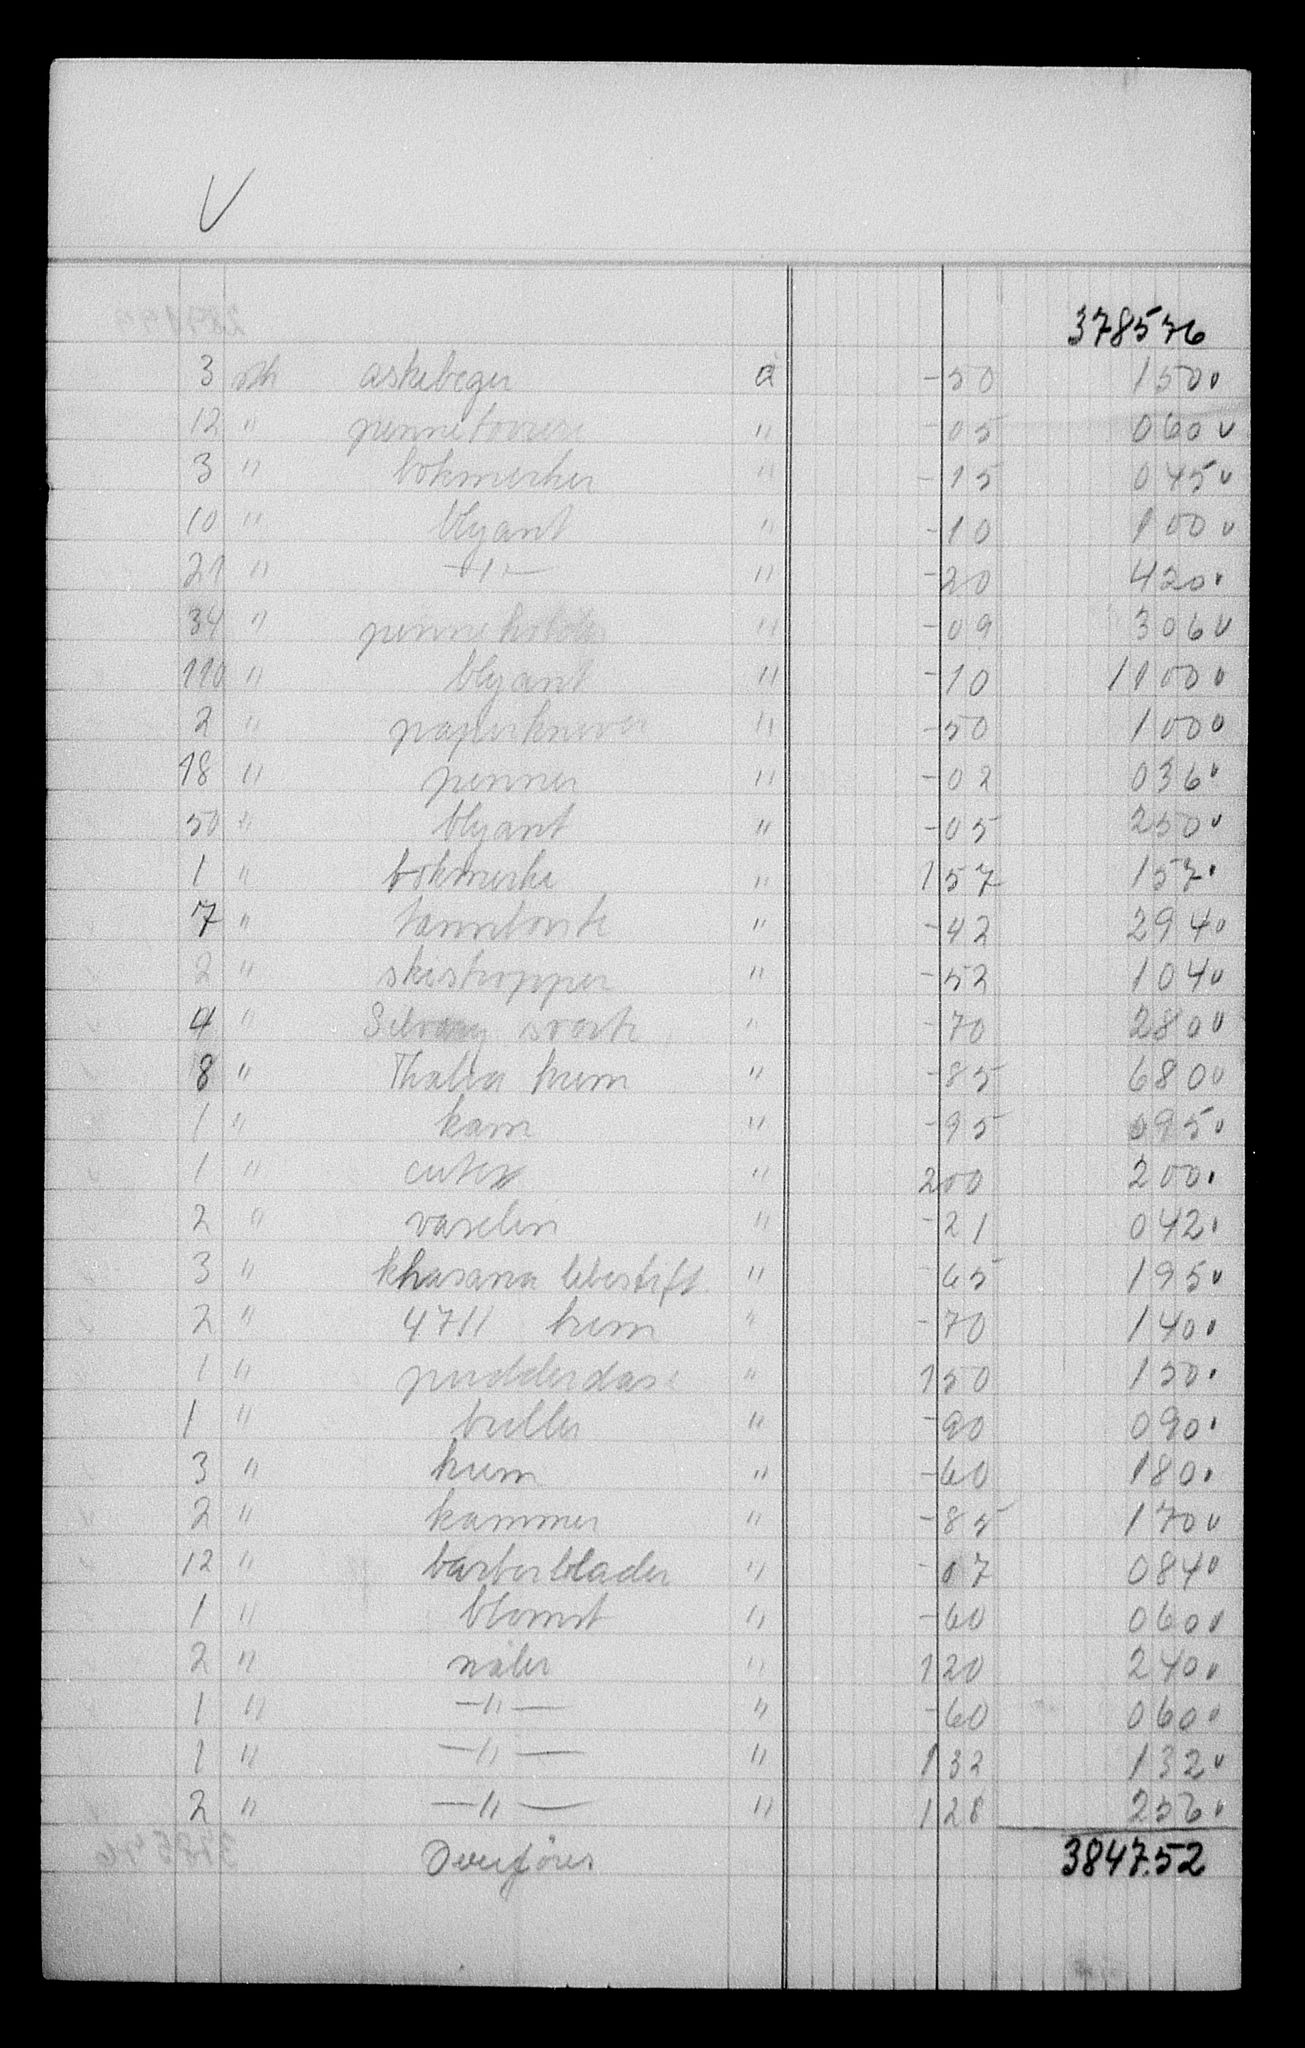 V
3785 76
3 stk askebeger à -50 1 50
12 " penne " -05 0 60
3 " bokmerker " -15 0 45
10 " blyant " -10 1 00
21 " —"— " -20 4 20
34 " penneholder " -09 3 06
110 " blyant " -10 11 00
2 " papirkniver " -50 1 00
18 " penner " -02 0 36
50 " blyant " -05 2 50
1 " bokmerke " 1 57 1 57
7 " tannbørste " -42 2 94
2 " skistropper " -52 1 04
4 " " -70 2 80
8 " Thalia krem " -85 6 80
1 " kam " -95 0 95
1 " cutex " 2 00 2 00
2 " vaselin " -21 0 42
3 " Khasana lebestift " -65 1 95
2 " 4711 krem " -70 1 40
1 " pudderdåse " 1 50 1 50
1 " briller " -90 0 90
3 " krem " -60 1 80
2 " kammer " -85 1 70
12 " barberblader " -07 0 84
1 " blomst " -60 0 60
2 " nåler " 1 20 2 40
1 " —"— " -60 0 60
1 " —"— " 1 32 1 32
2 " —"— " 1 28 2 56
Overføres 3847.52